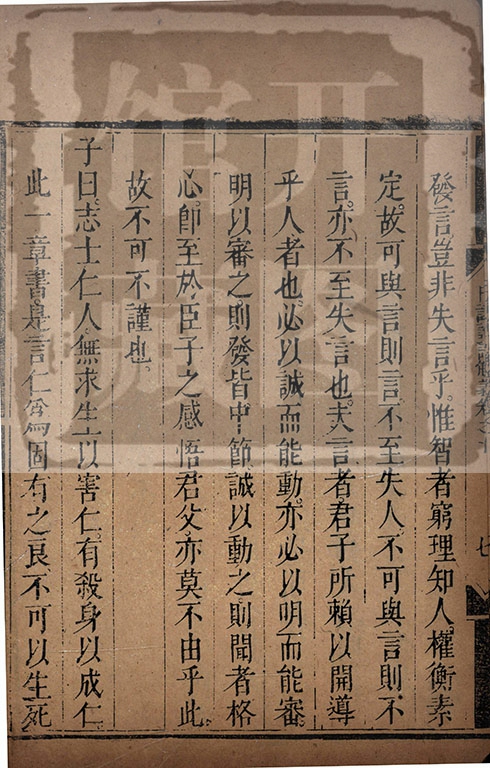 發言豈非失言乎。惟智者窮理知人。權衡素
定。故可與言則言。不至失人。不可與言則不
言。亦不至失言也。夫言者。君子所賴以開導
乎人者也。必以誠而能動。亦必以明而能審。
明以審之。則發皆中節。誠以動之。則聞者格
心。即至於臣子之感悟君父。亦莫不由乎此。
故不可不謹也。
子曰。志士仁人。無求生以害仁。有殺身以成仁。
此一章書是言仁為固有之良。不可以生死